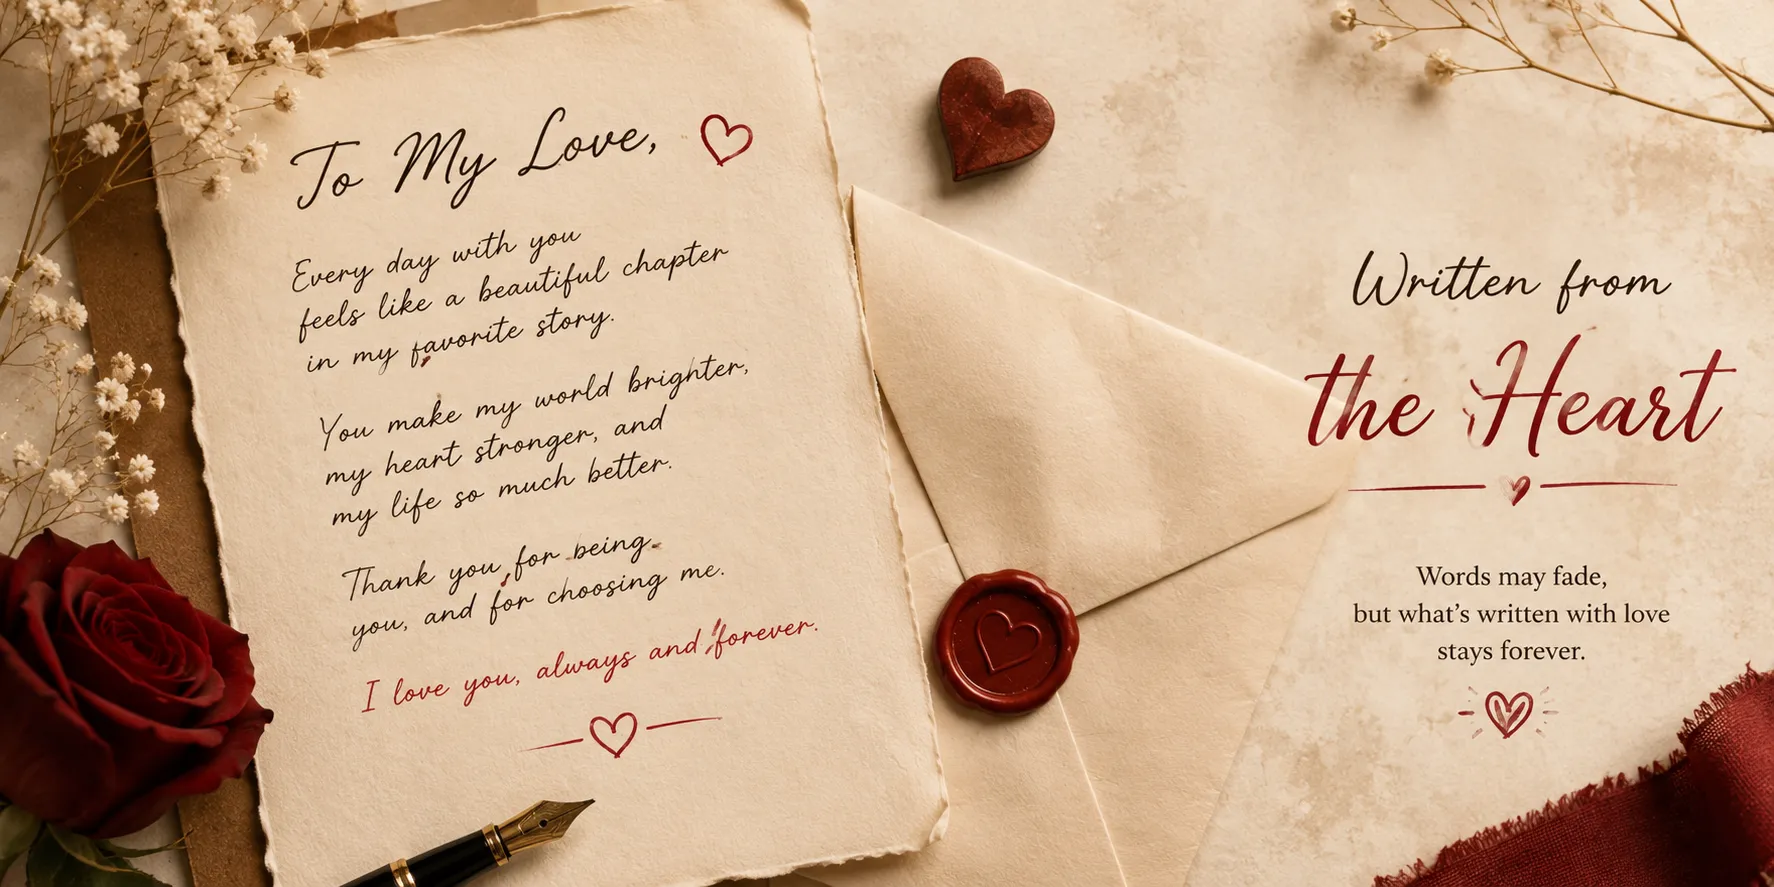 To My Love,
Every day with you
feels like a beautiful chapter
in my favorite story.
You make my world brighter,
my heart stronger, and
my life so much better.
Thank you for being
you, and for choosing me.
I love you, always and forever.
Written from
the Heart
Words may fade,
but what's written with love
stays forever.